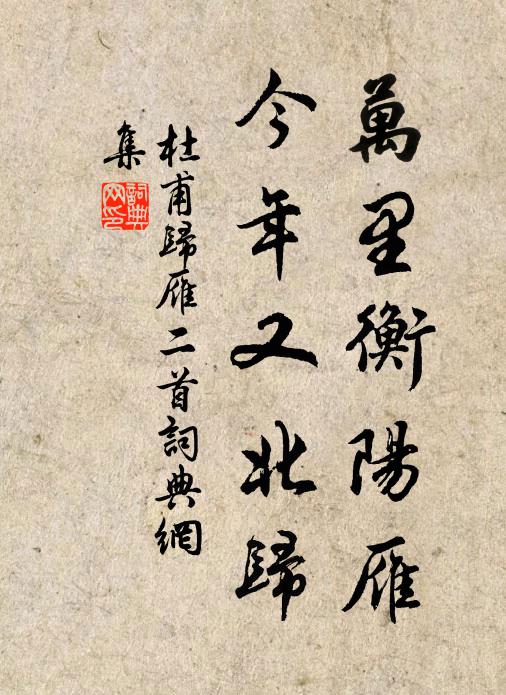 萬里衡陽雁
今年又北歸
杜甫歸雁二首詞典網
集
詞典網印